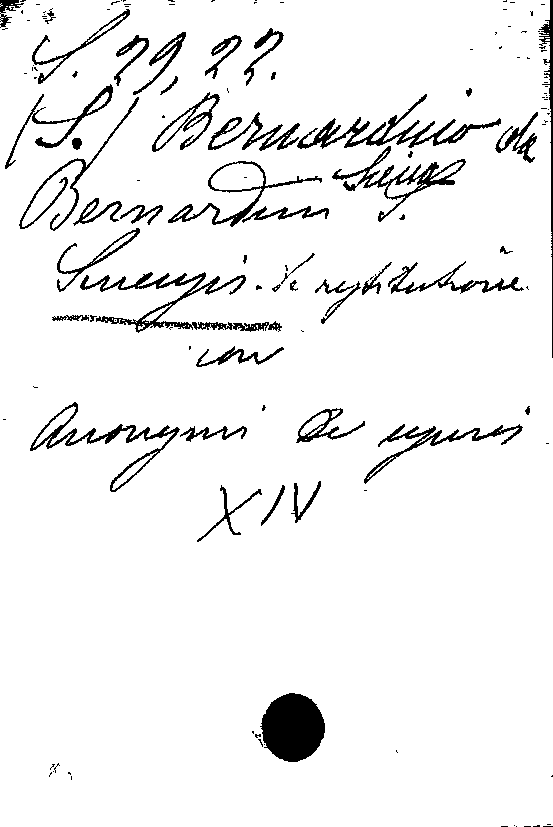 S. 29, 22.
(S.) Bernardino da
Siena
Bernardini S.
Senensis. De restitutione
con
Anonymi De usuris
XIV